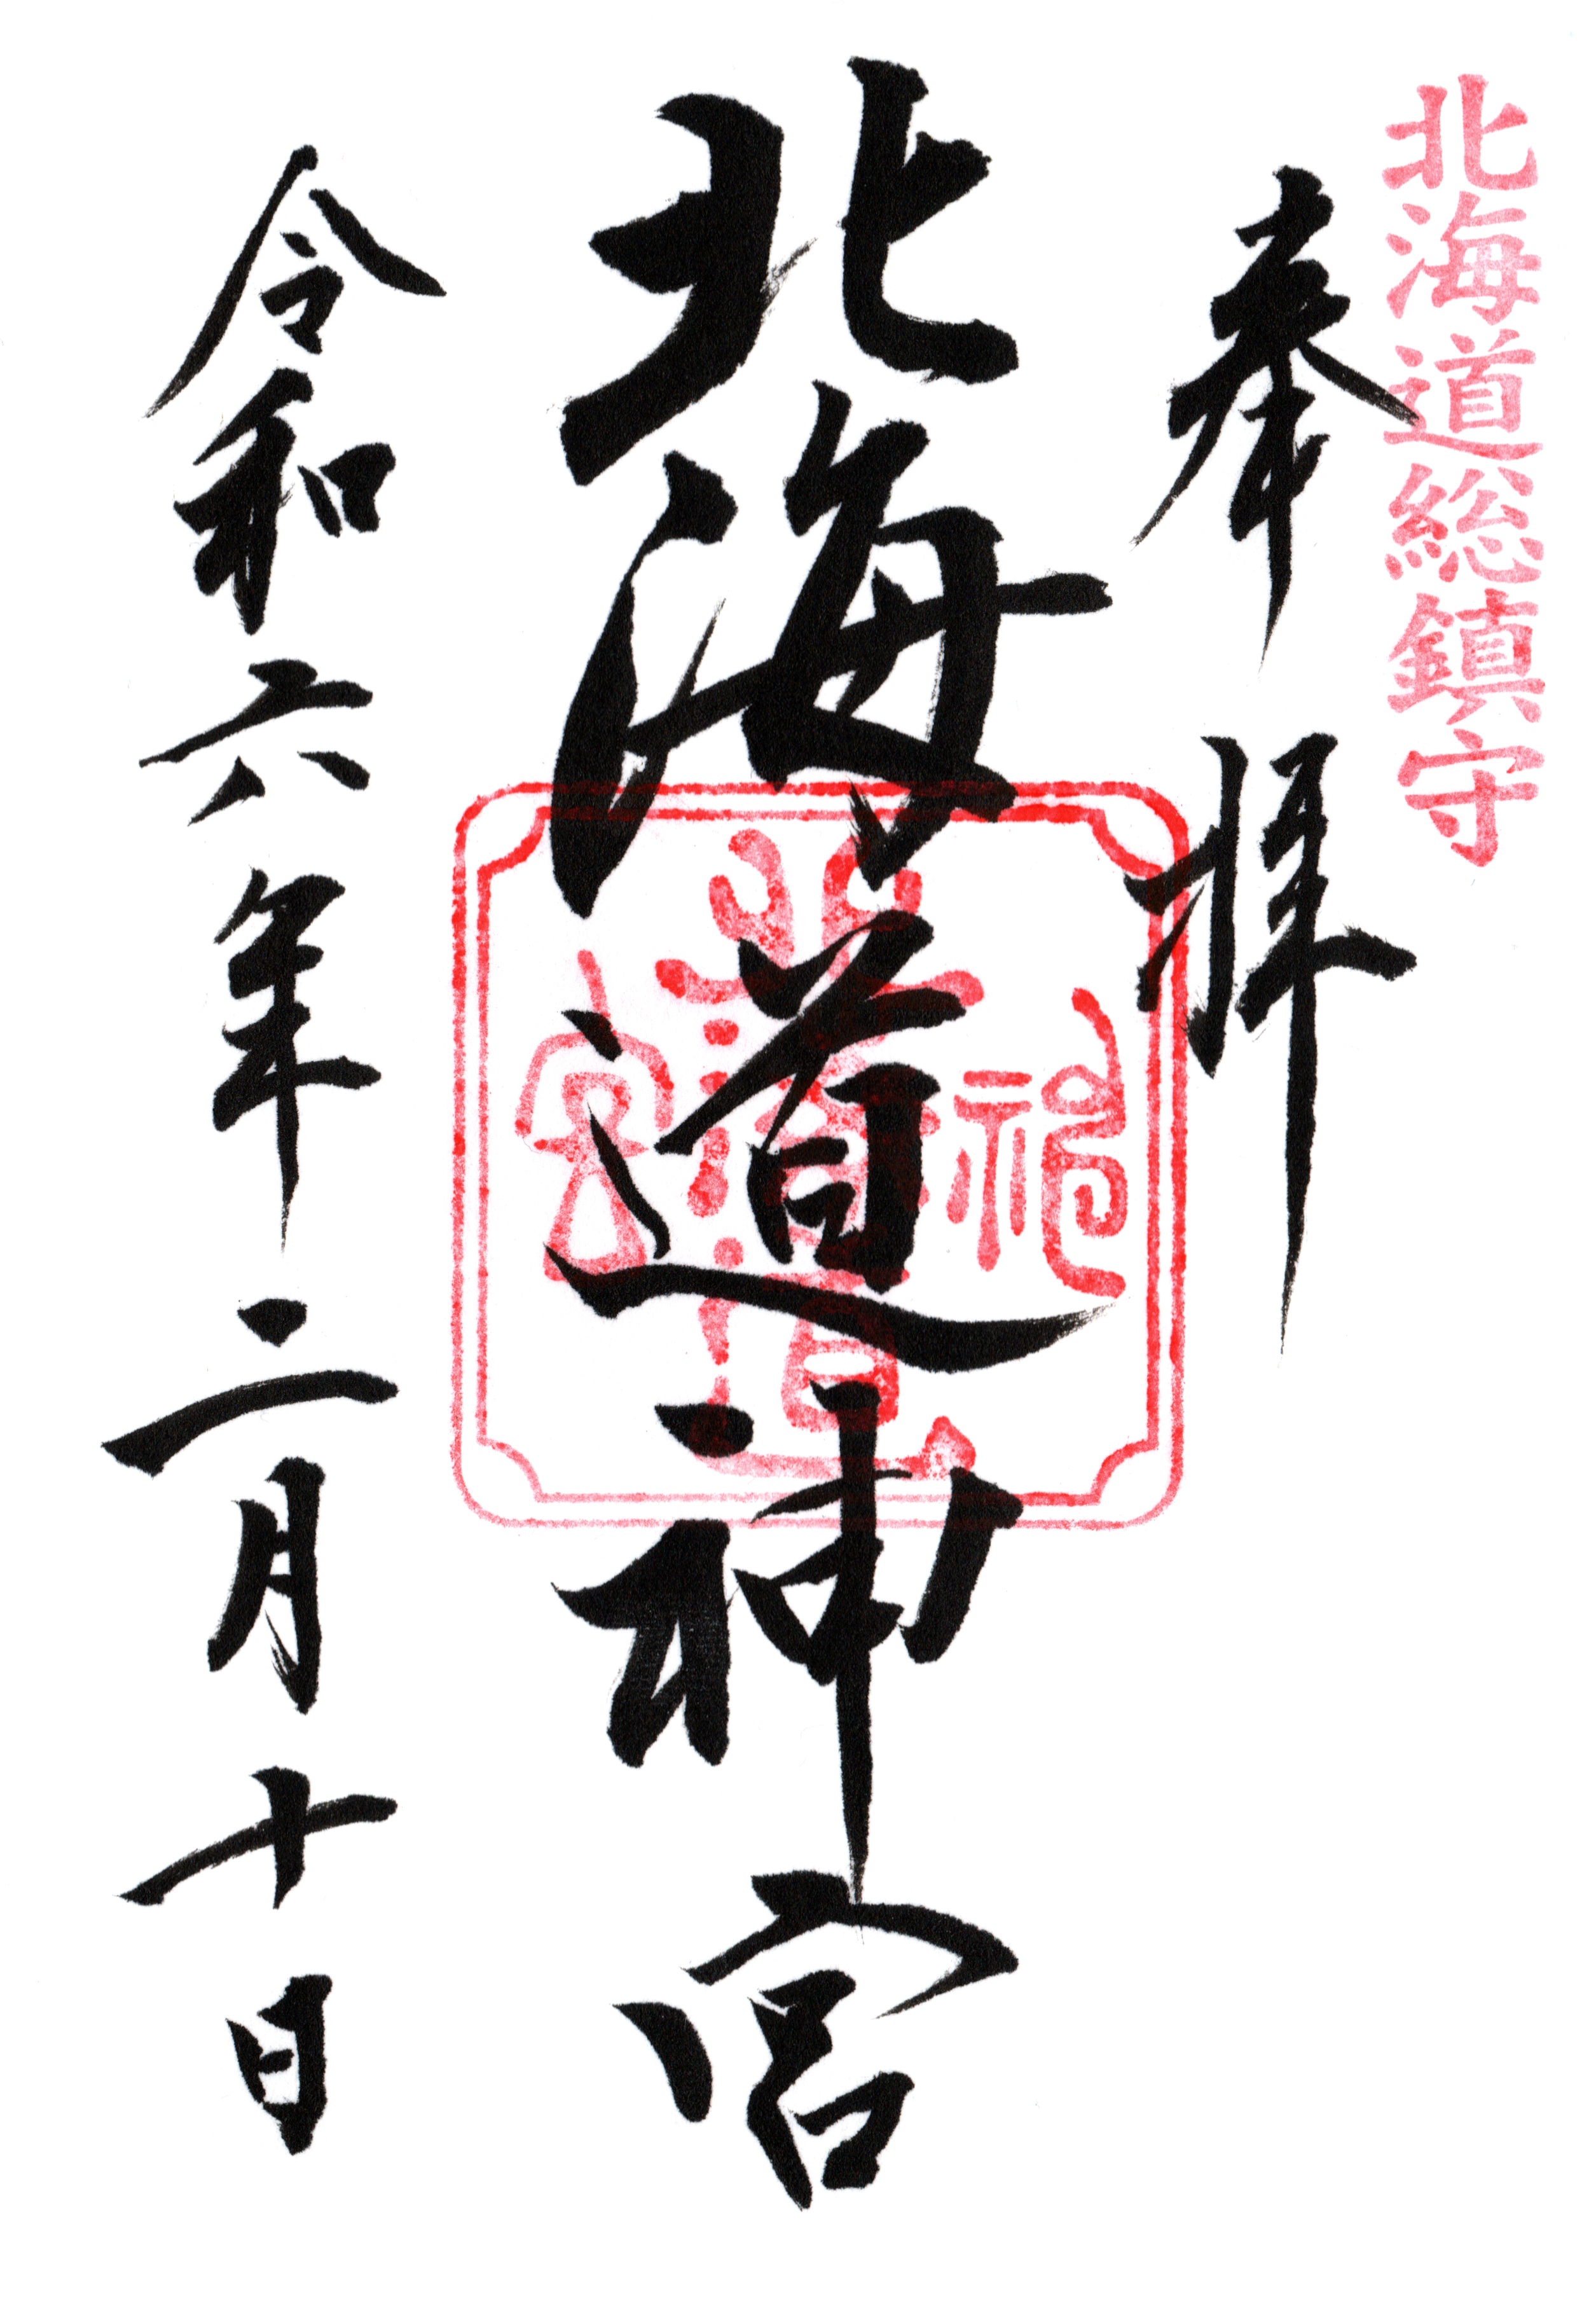 北海道総鎮守
奉拝
北海道神宮
令和六年二月十日